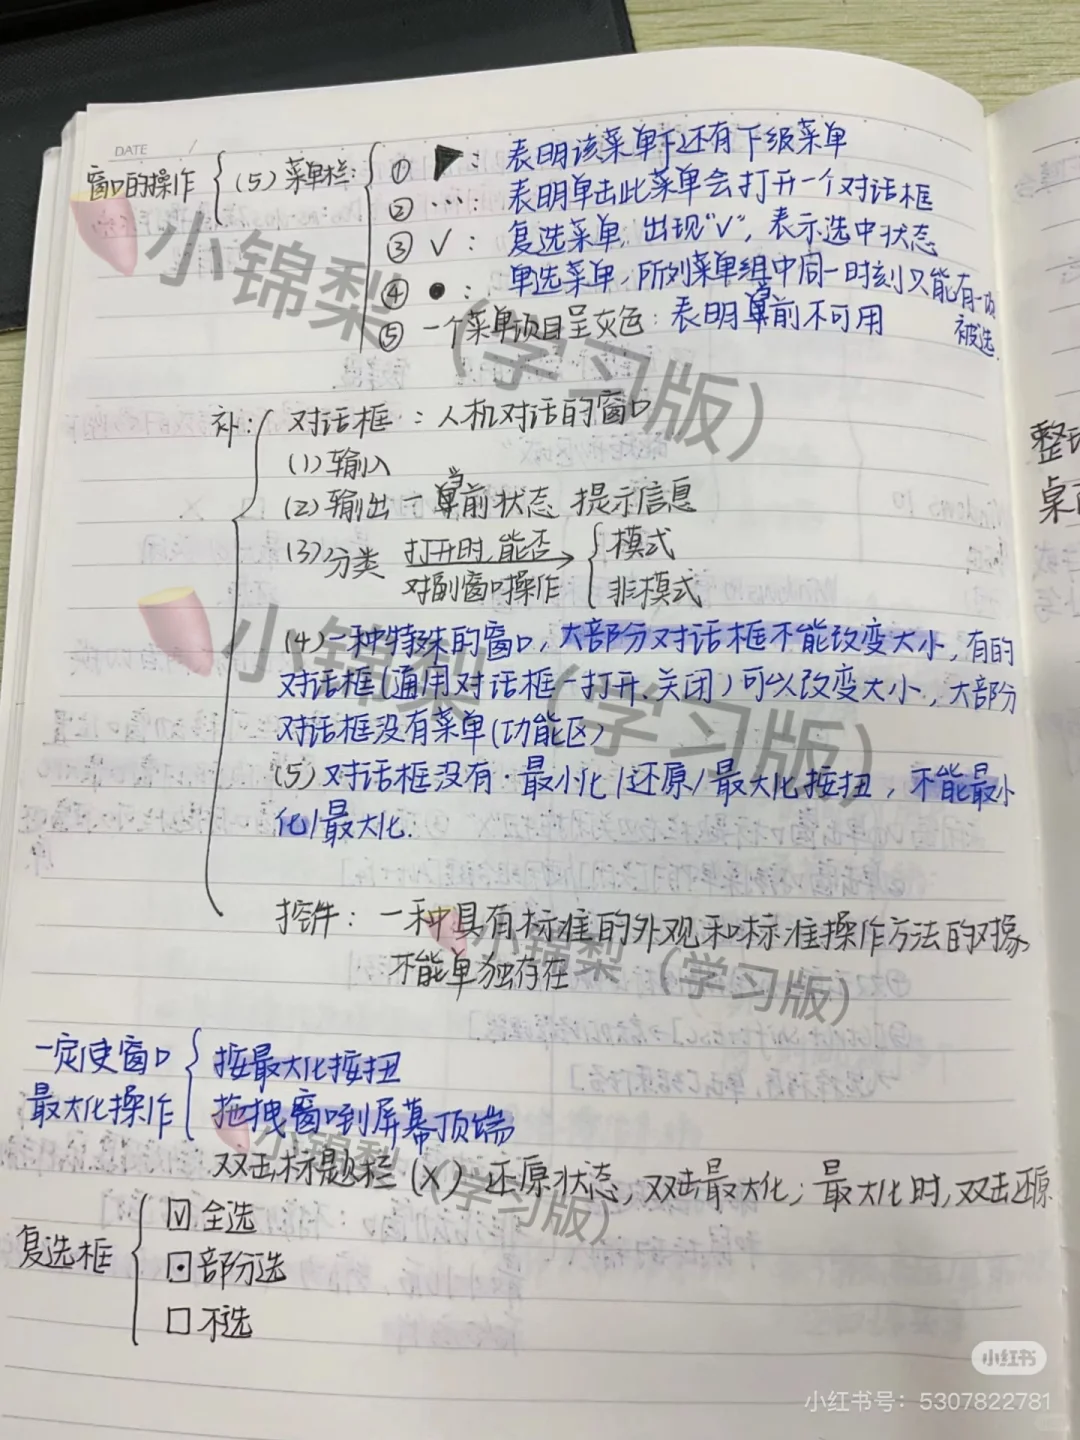 DATE /
窗口的操作 (5) 菜单栏:
① ▶: 表明该菜单下还有下级菜单
② ···: 表明单击此菜单会打开一个对话框
③ √: 复选菜单, 出现"√", 表示选中状态
④ ●: 单选菜单, 所列菜单组中同一时刻只能有一项被选.
⑤ 一个菜单项目呈灰色: 表明当前不可用
补: 对话框: 人机对话的窗口
(1) 输入
(2) 输出—当前状态 提示信息
(3) 分类 打开时,能否
对副窗口操作
模式
非模式
(4) 一种特殊的窗口, 大部分对话框不能改变大小, 有的
对话框(通用对话框-打开,关闭)可以改变大小, 大部分
对话框没有菜单(功能区)
(5) 对话框没有·最小化/还原/最大化按扭, 不能最小
化/最大化.
控件: 一种具有标准的外观和标准操作方法的对象
不能单独存在
一定使窗口
最大化操作
按最大化按扭
拖拽窗口到屏幕顶端
双击标题栏(X) 还原状态, 双击最大化; 最大化时, 双击还原
复选框
☑ 全选
⊡ 部分选
□ 不选
整理
桌面
小锦梨(学习版)
小锦梨(学习版)
小锦梨(学习版)
小锦梨(学习版)
小红书
小红书号: 5307822781